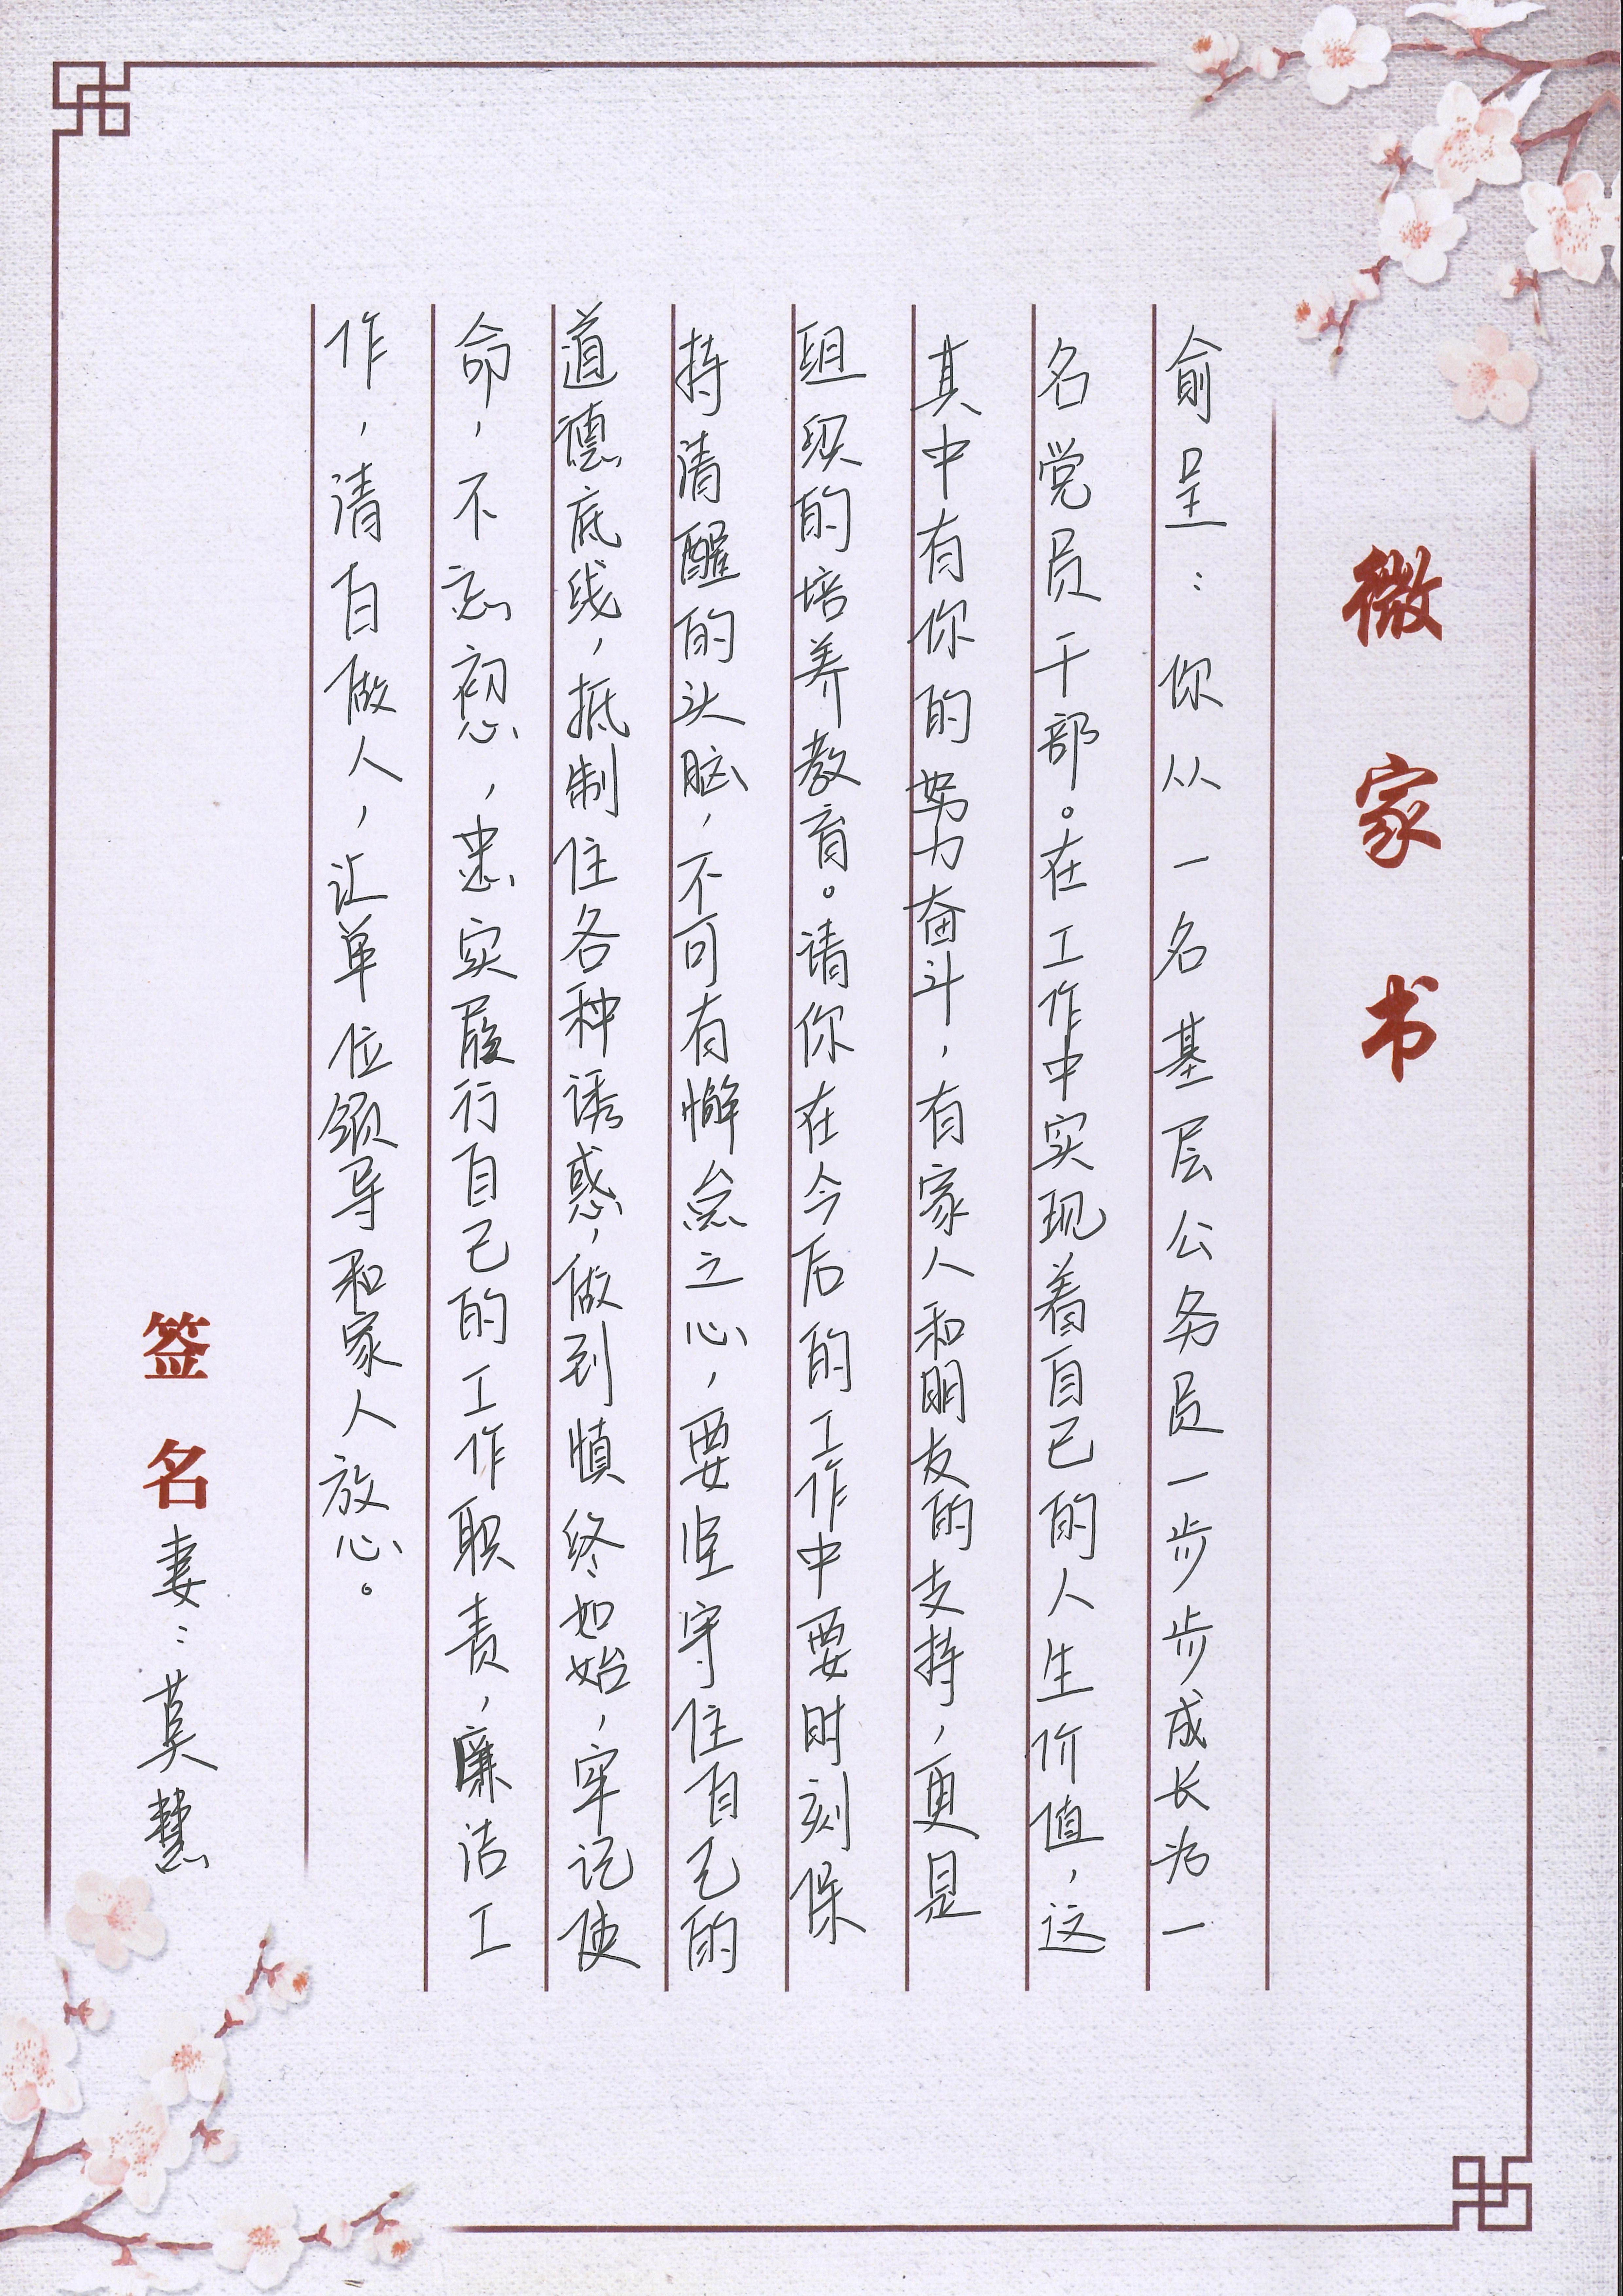 微家书
俞呈：你从一名基层公务员一步步成长为一
名党员干部。在工作中实现着自己的人生价值，这
其中有你的努力奋斗，有家人和朋友的支持，更是
组织的培养教育。请你在今后的工作中要时刻保
持清醒的头脑，不可有懈怠之心，要坚守住自己的
道德底线，抵制住各种诱惑，做到慎终如始，牢记使
命，不忘初心，忠实履行自己的工作职责，廉洁工
作，清白做人，让单位领导和家人放心。
签名妻：莫慧